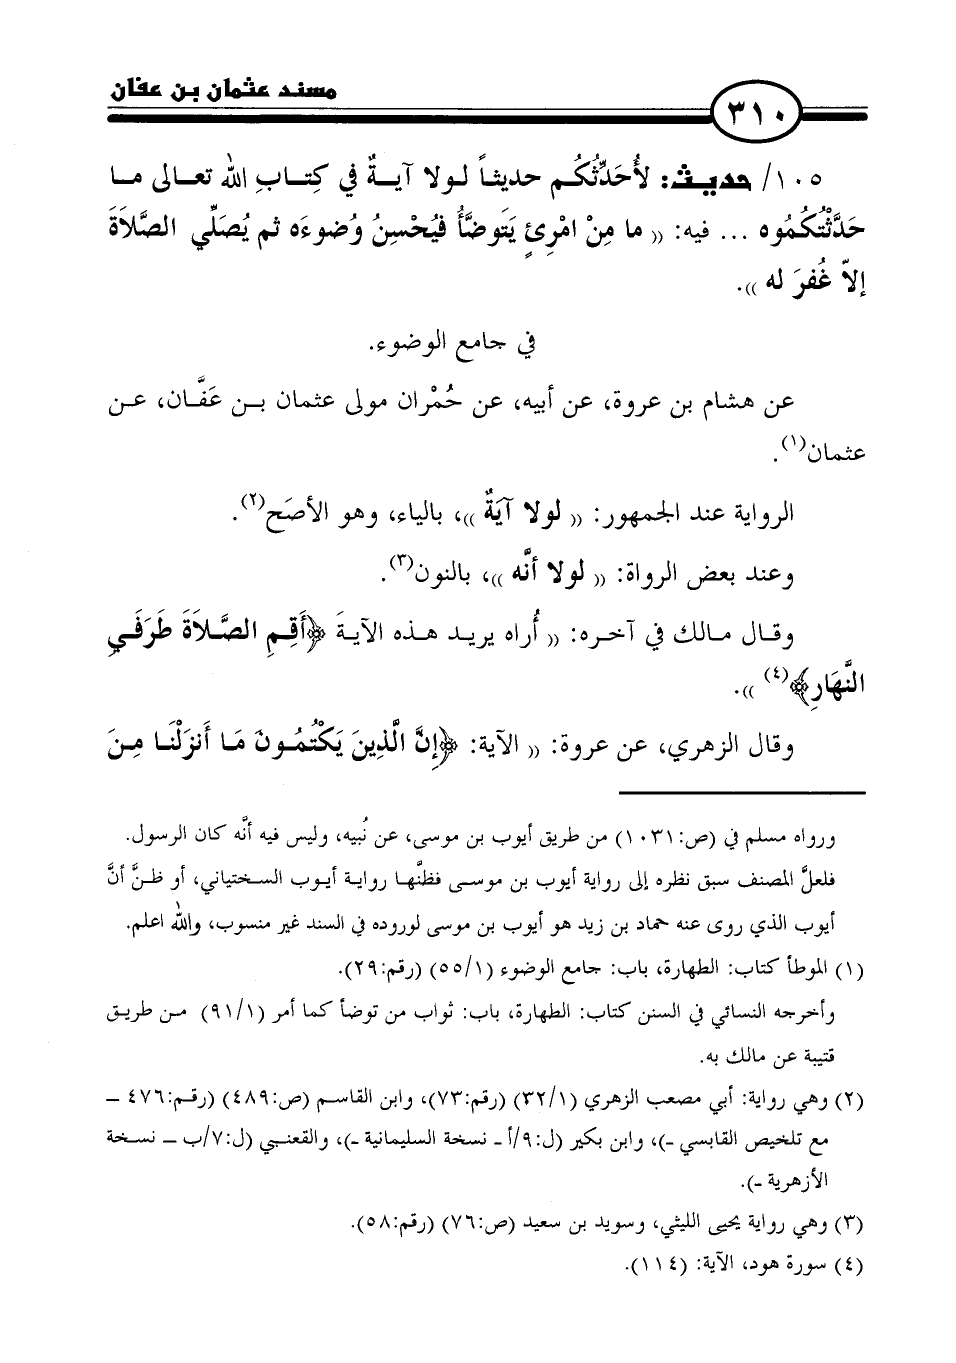 مسند عثمان بن عفان
٣١٠
١٠٥/ حديث: لأُحَدِّثُكُم حديثاً لولا آيةٌ في كِتابِ الله تعالى ما
حَدَّثْتُكُمُوه ... فيه: « ما مِنْ امْرِئٍ يَتَوضَّأُ فيُحْسِنُ وُضوءَه ثم يُصَلِّي الصَّلاَةَ
إلاّ غُفرَ له ».
في جامع الوضوء.
عن هشام بن عروة، عن أبيه، عن حُمْران مولى عثمان بن عَفَّان، عن
عثمان(١).
الرواية عند الجمهور: « لولا آيَةٌ »، بالياء، وهو الأصَح(٢).
وعند بعض الرواة: « لولا أنَّه »، بالنون(٣).
وقال مالك في آخره: « أُراه يريد هذه الآيةَ ﴿أَقِمِ الصَّلاَةَ طَرَفَيِ
النَّهَارِ﴾(٤) ».
وقال الزهري، عن عروة: « الآية: ﴿إنَّ الَّذِينَ يَكْتُمُونَ مَا أَنزَلْنَا مِنَ
ورواه مسلم في (ص:١٠٣١) من طريق أيوب بن موسى، عن نُبيه، وليس فيه أنَّه كان الرسول.
فلعلَّ المصنف سبق نظره إلى رواية أيوب بن موسى فظنَّها رواية أيوب السختياني، أو ظنَّ أنَّ
أيوب الذي روى عنه حماد بن زيد هو أيوب بن موسى لوروده في السند غير منسوب، والله اعلم.
(١) الموطأ كتاب: الطهارة، باب: جامع الوضوء (٥٥/١) (رقم:٢٩).
وأخرجه النسائي في السنن كتاب: الطهارة، باب: ثواب من توضأ كما أمر (٩١/١) من طريق
قتيبة عن مالك به.
(٢) وهي رواية: أبي مصعب الزهري (٣٢/١) (رقم:٧٣)، وابن القاسم (ص:٤٨٩) (رقم:٤٧٦ ـ
مع تلخيص القابسي ـ)، وابن بكير (ل:٩/أ ـ نسخة السليمانية ـ)، والقعنبي (ل:٧/ب ـ نسخة
الأزهرية ـ).
(٣) وهي رواية يحيى الليثي، وسويد بن سعيد (ص:٧٦) (رقم:٥٨).
(٤) سورة هود، الآية: (١١٤).